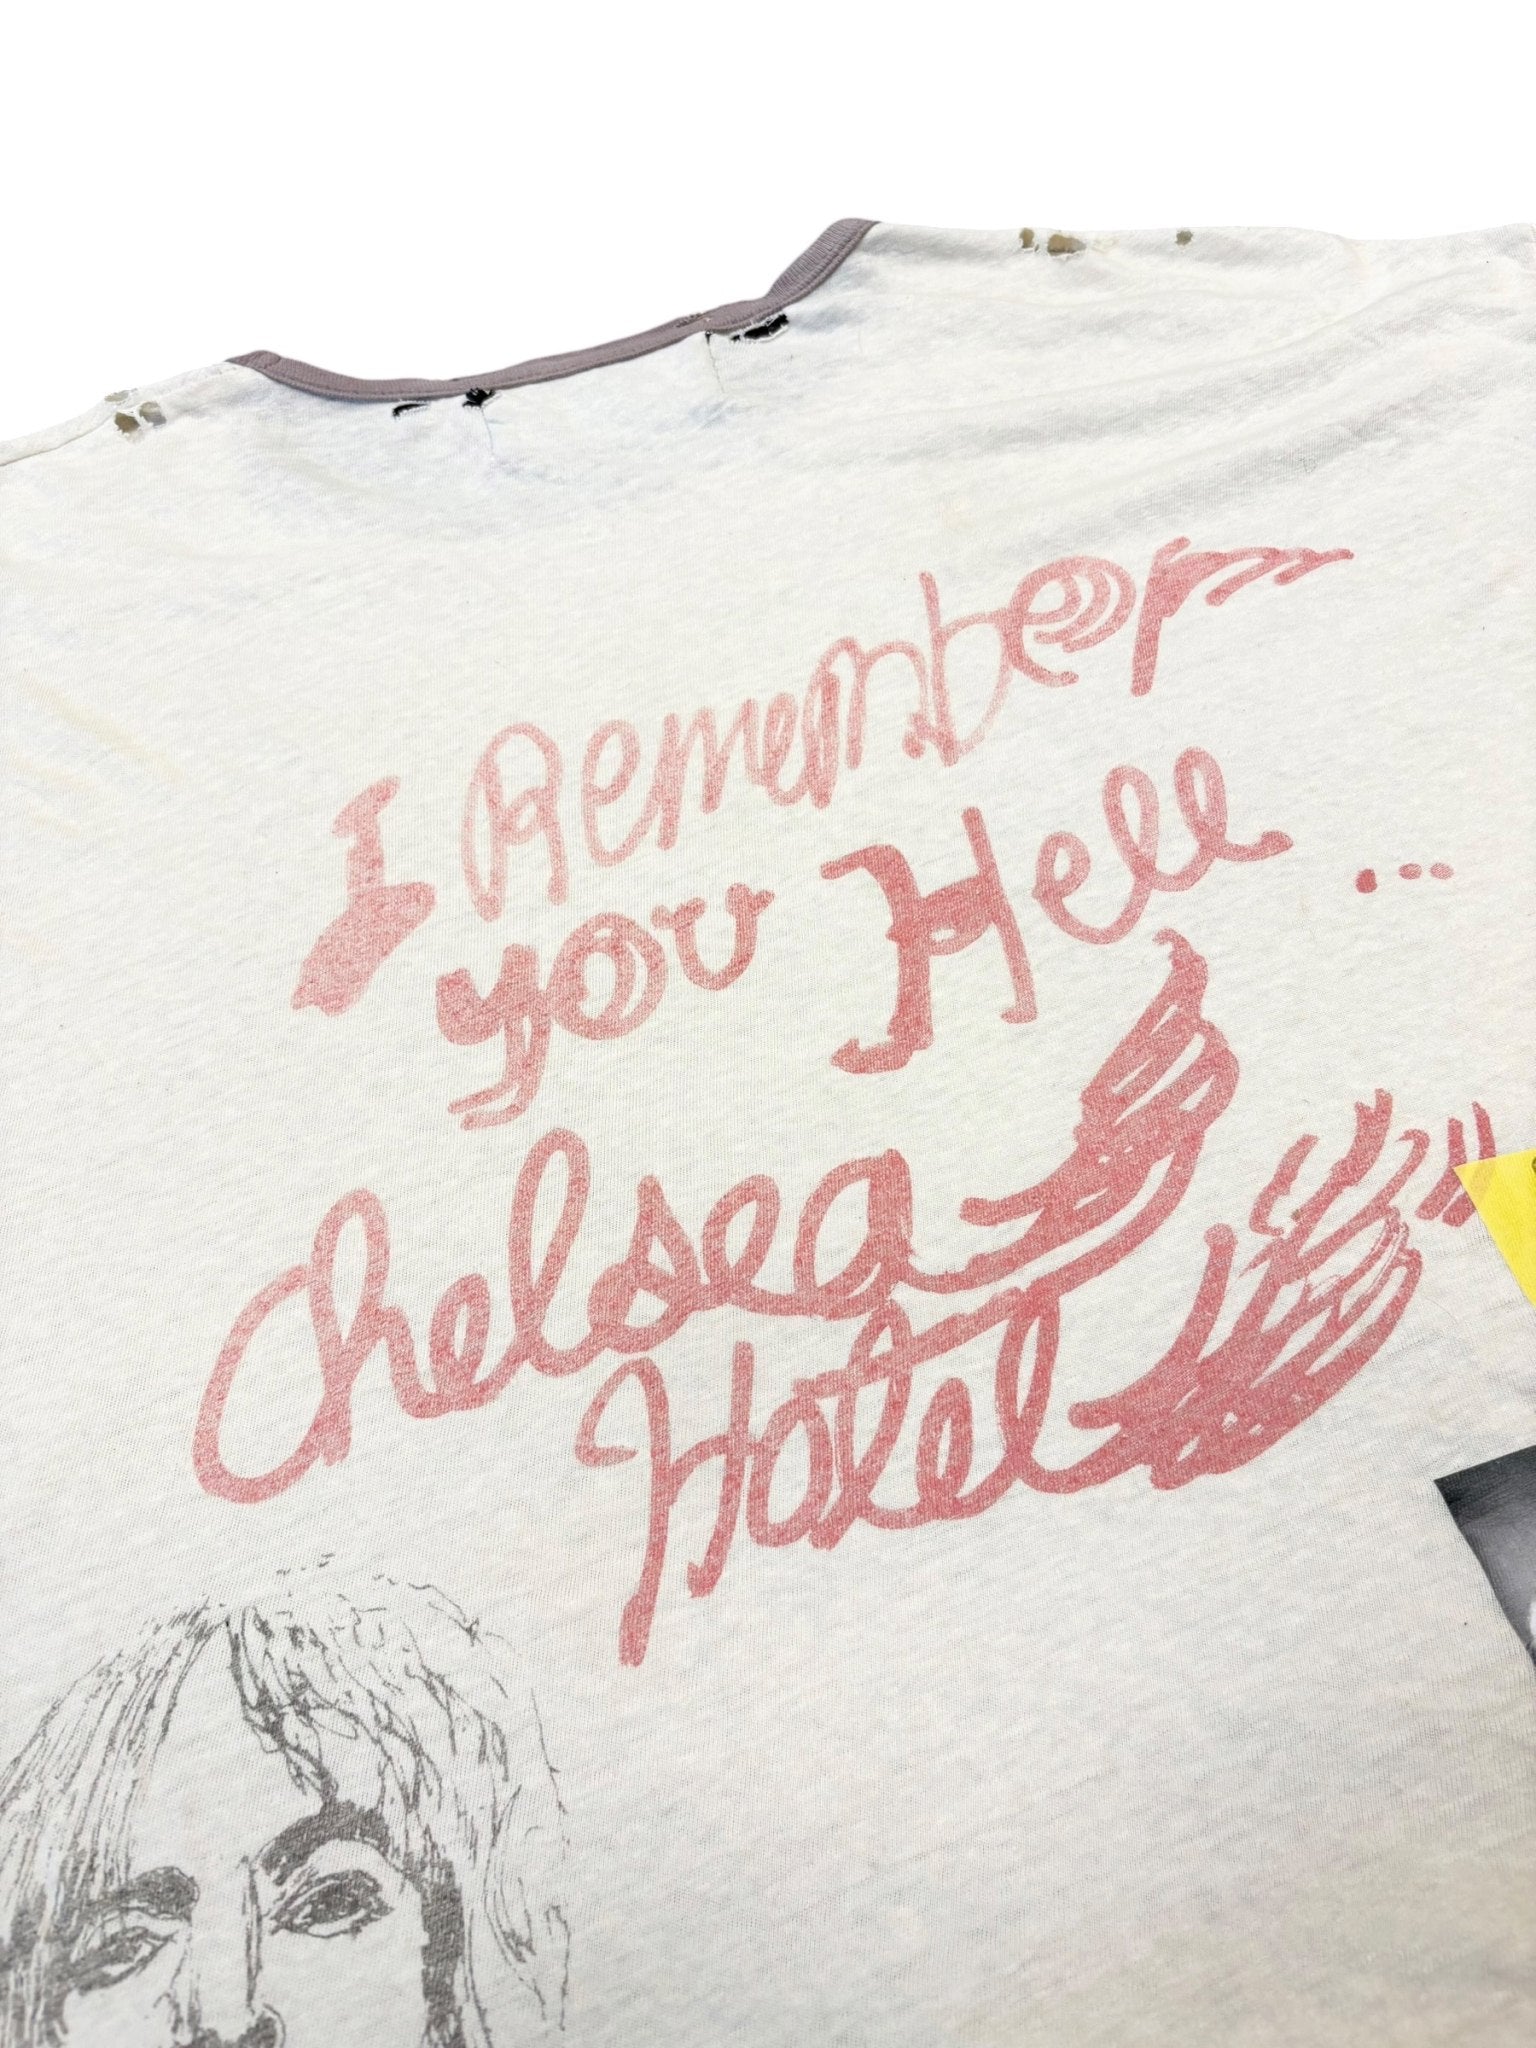 I Remember
you Hell ...
Chelsea
Hotel "